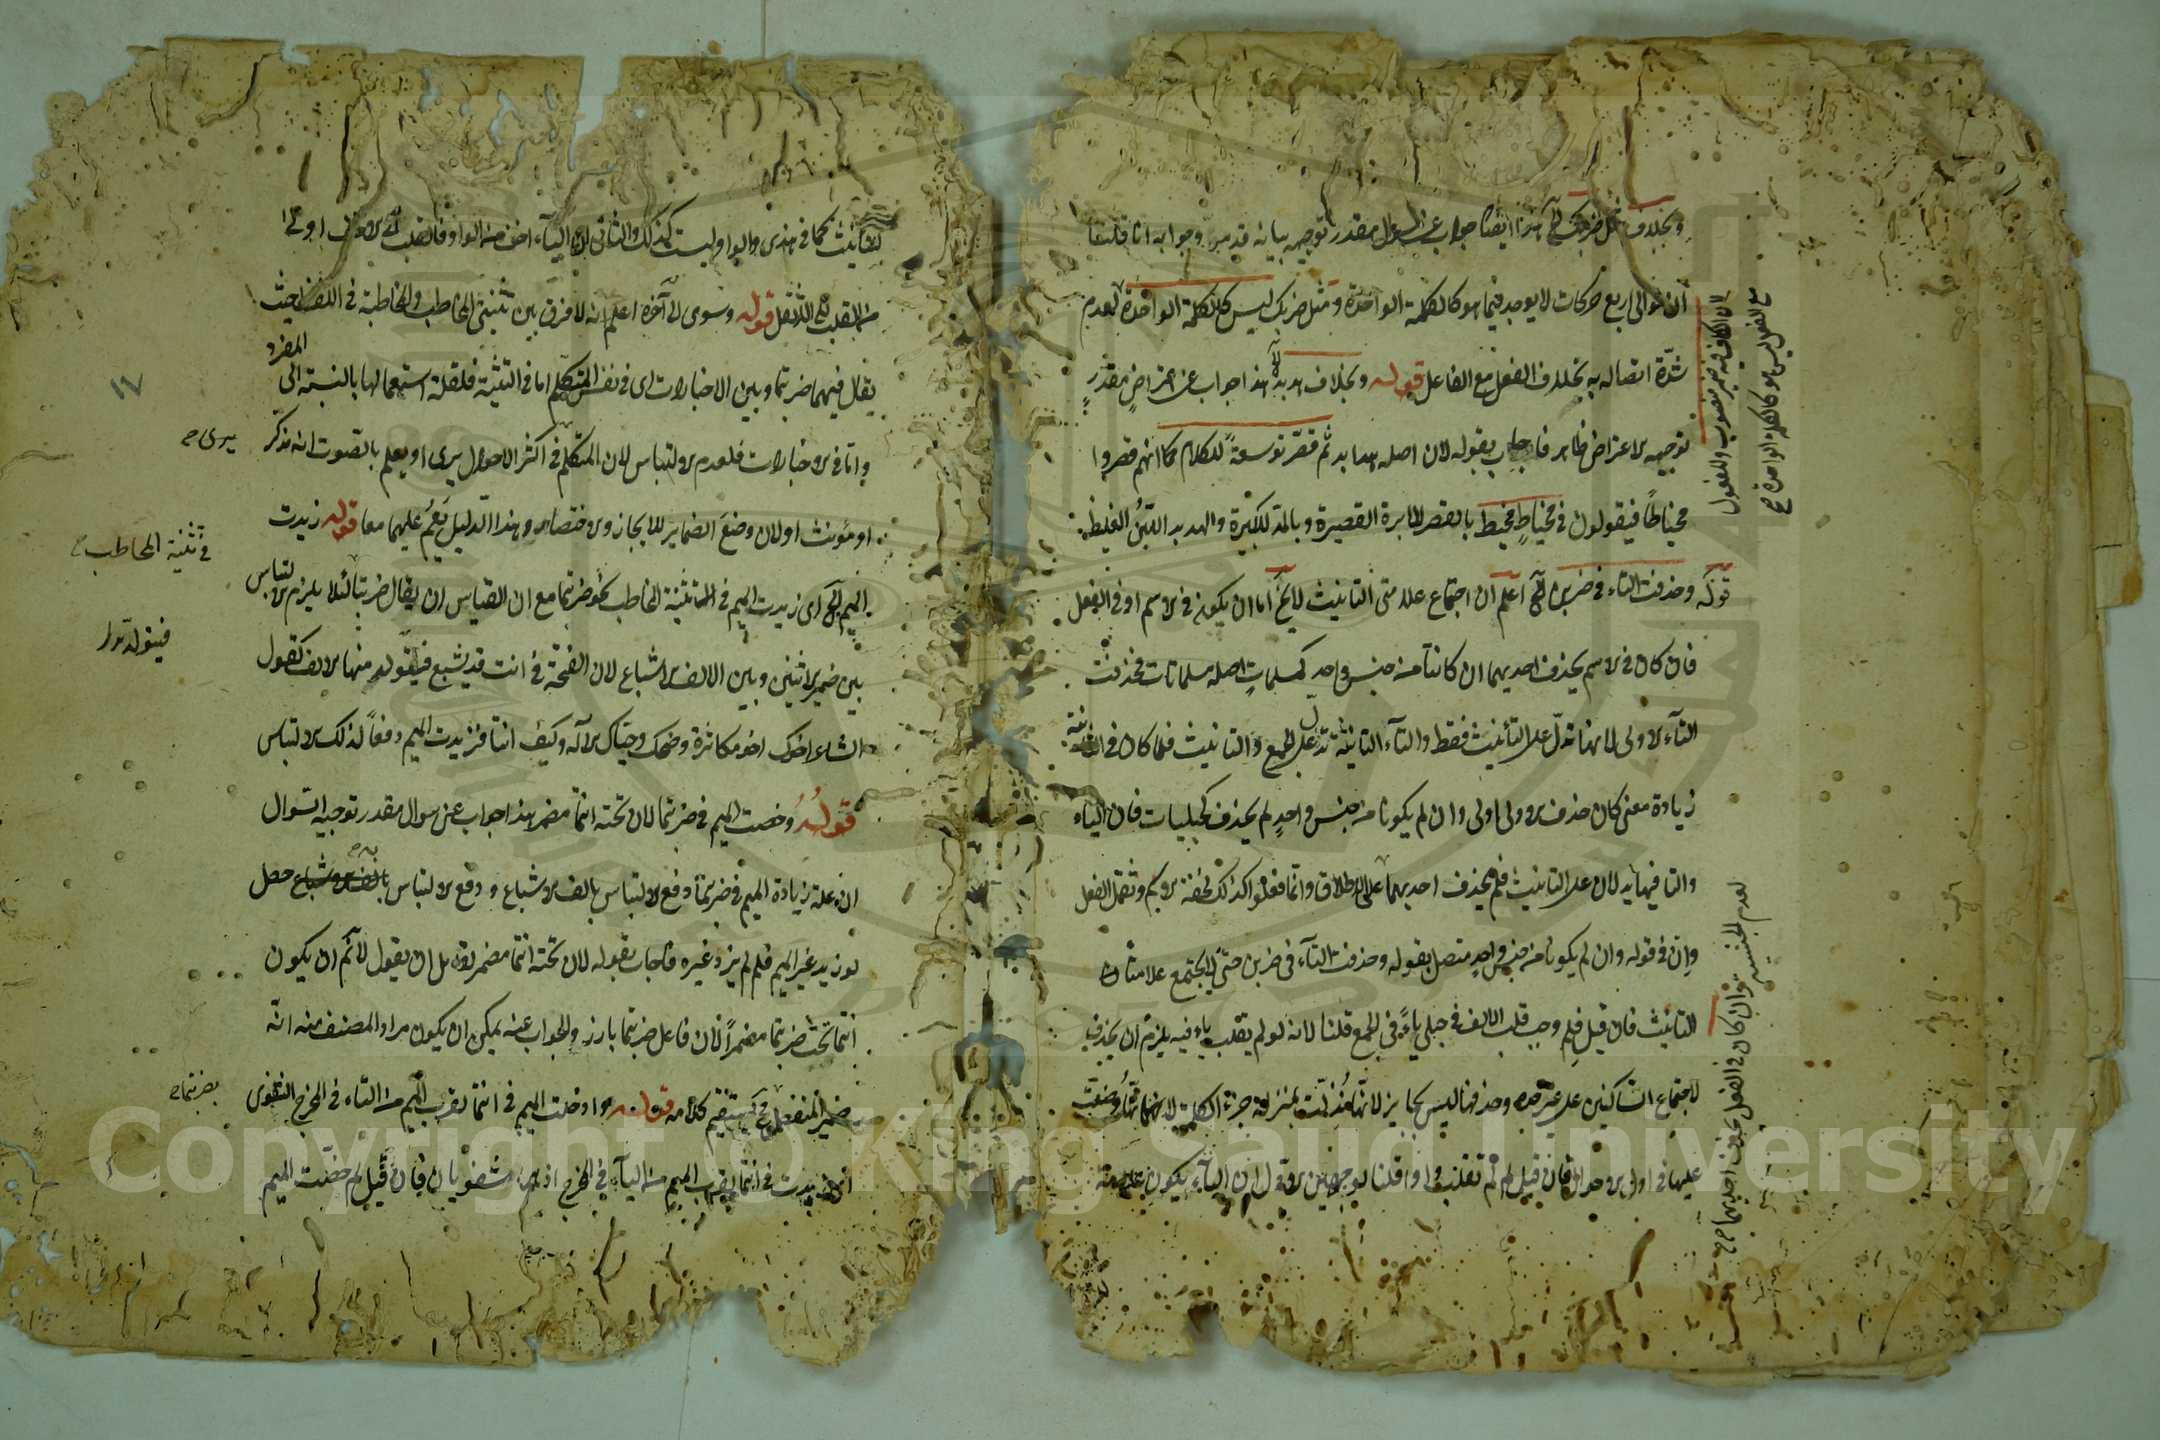 وبخلاف مثل ضربك الخ هذا ايضا جواب عن السوال مقدر توجيه بيانه قد مر وجوابه انا قلنا
ان توالى اربع حركات لا يوجد فيما هو كالكلمة الواحدة ومثل ضربك ليس كالكلمة الواحدة لعدم
شدّة اتصاله به بخلاف الفعل مع الفاعل قوله وبخلاف هدبد هذا جواب عن اعتراض مقدّر
توجيه الاعتراض ظاهر فاجاب بقوله لان اصله هدابد ثم قصر توسعةً للكلام كما انهم قصروا
مخياطًا فيقولون في مخياطٍ مخيط بالقصر للابرة القصيرة وبالمد للكبيرة والهدبد اللبنُ الغليظ
قوله وحذفت التاء في ضربن الخ اعلم ان اجتماع علامتى التانيث لا يخ اما ان يكون في الاسم او في الفعل
فان كان في الاسم يحذف احديهما ان كانتا من جنس واحد كمسلماتٍ اصله مسلمتات فحذفت
التاء الاولى لانها تدلّ على التأنيث فقط والتاء الثانية تدل على الجمع والتانيث فلما كان في الثانية
زيادة معنى كان حذف الاولى اولى وان لم يكونا من جنس واحدٍ لم يحذف كحبليات فان الياء
والتا فيها يدلان على التانيث فلم يحذف احديهما على الاطلاق وانما فعلوا كذلك لخفة الاسم وثقل الفعل
وان في قوله وان لم يكونا من جنس واحدٍ متصل بقوله وحذفت التاء في ضربن حتى لا يجتمع علامتان
التانيث فان قيل فلم وجب قلب الالف في حبلى ياءً في الجمع قلنا لانه لو لم يقلب ياء فيه يلزم ان يحذف
لاجتماع الساكنين على غير حده وحذفها ليس بجايز لانها نُزلت بمنزلة جزء الكلمة لانها وضعت
عليها في اول الاحوال فان قيل لم لم تقلب واوا قلنا لوجهين الاول ان الياء يكون علامة
لان الكاف فيه ضمير منصوب والمفعول
مع الفعل ليس هو كالكلمة الواحدة صح
لعدم الجنسية وان كان في الفعل يحذف احديهما صح
للتانيث كما في هذى والواو ليست كذلك والثانى لان الياء اخف من الواو فالقلب الى الاخف اولى
من القلب الى الاثقل قوله وسوى الى آخره اعلم انه لا فرق بين تثنيتى المخاطب والمخاطبة في اللفظ حيث
يقال فيهما ضربتما وبين الاخبارات اى في نفس المتكلم اما في التثنية فلقلة استعمالها بالنسبة الى المفرد
واما في الاخبارات فلعدم الالتباس لان المتكلم في اكثر الاحوال يرى او يعلم بالصوت انه مذكر
او مؤنث او لان وضع الضماير للايجاز والاختصار وهذا الدليل يَعُمّ عليهما معا قوله زيدت
الميم الخ اى زيدت الميم في التثنية المخاطب نحو ضربتما مع ان القياس ان يقال ضربتا لئلا يلزم الالتباس
بين ضمير الاثنين وبين الالف الاشباع لان الفتحة في انت قد يشبع فيتولد منها الالف كقول
الشاعر اخوك اخو مكاشرة وضحك وحياك الاله وكيف انتا فزيدت الميم دفعاً لذلك الالتباس
قولهُ وخصت الميم في ضربتما لان تحته انتما مضمر هذا جواب عن سوال مقدر توجيه السوال
ان علة زيادة الميم في ضربتما دفع الالتباس بالف الاشباع ودفع الالتباس حصل
لو زيد غير الميم فلم لم يزد غيره فاجاب بقوله لان تحته انتما مضمر لقائل ان يقول لا نم ان يكون
انتما تحت ضربتما مضمراً فان فاعل ضربتما بارز والجواب عنه يمكن ان يكون مراد المصنف منه انه
ضمير المنفصل في يستقيم كلامه قوله وادخلت الميم في انتما لقرب الميم من التاء في المخرج الشفوى
انما زيدت في انتما لقرب الميم من الياء في المخرج اذ هما شفويان فان قيل لم خصّت الميم
١٧
يرى ح
في تثنية المخاطب ح
فيتولد
بضربتما ح
Copyright © King Saud University